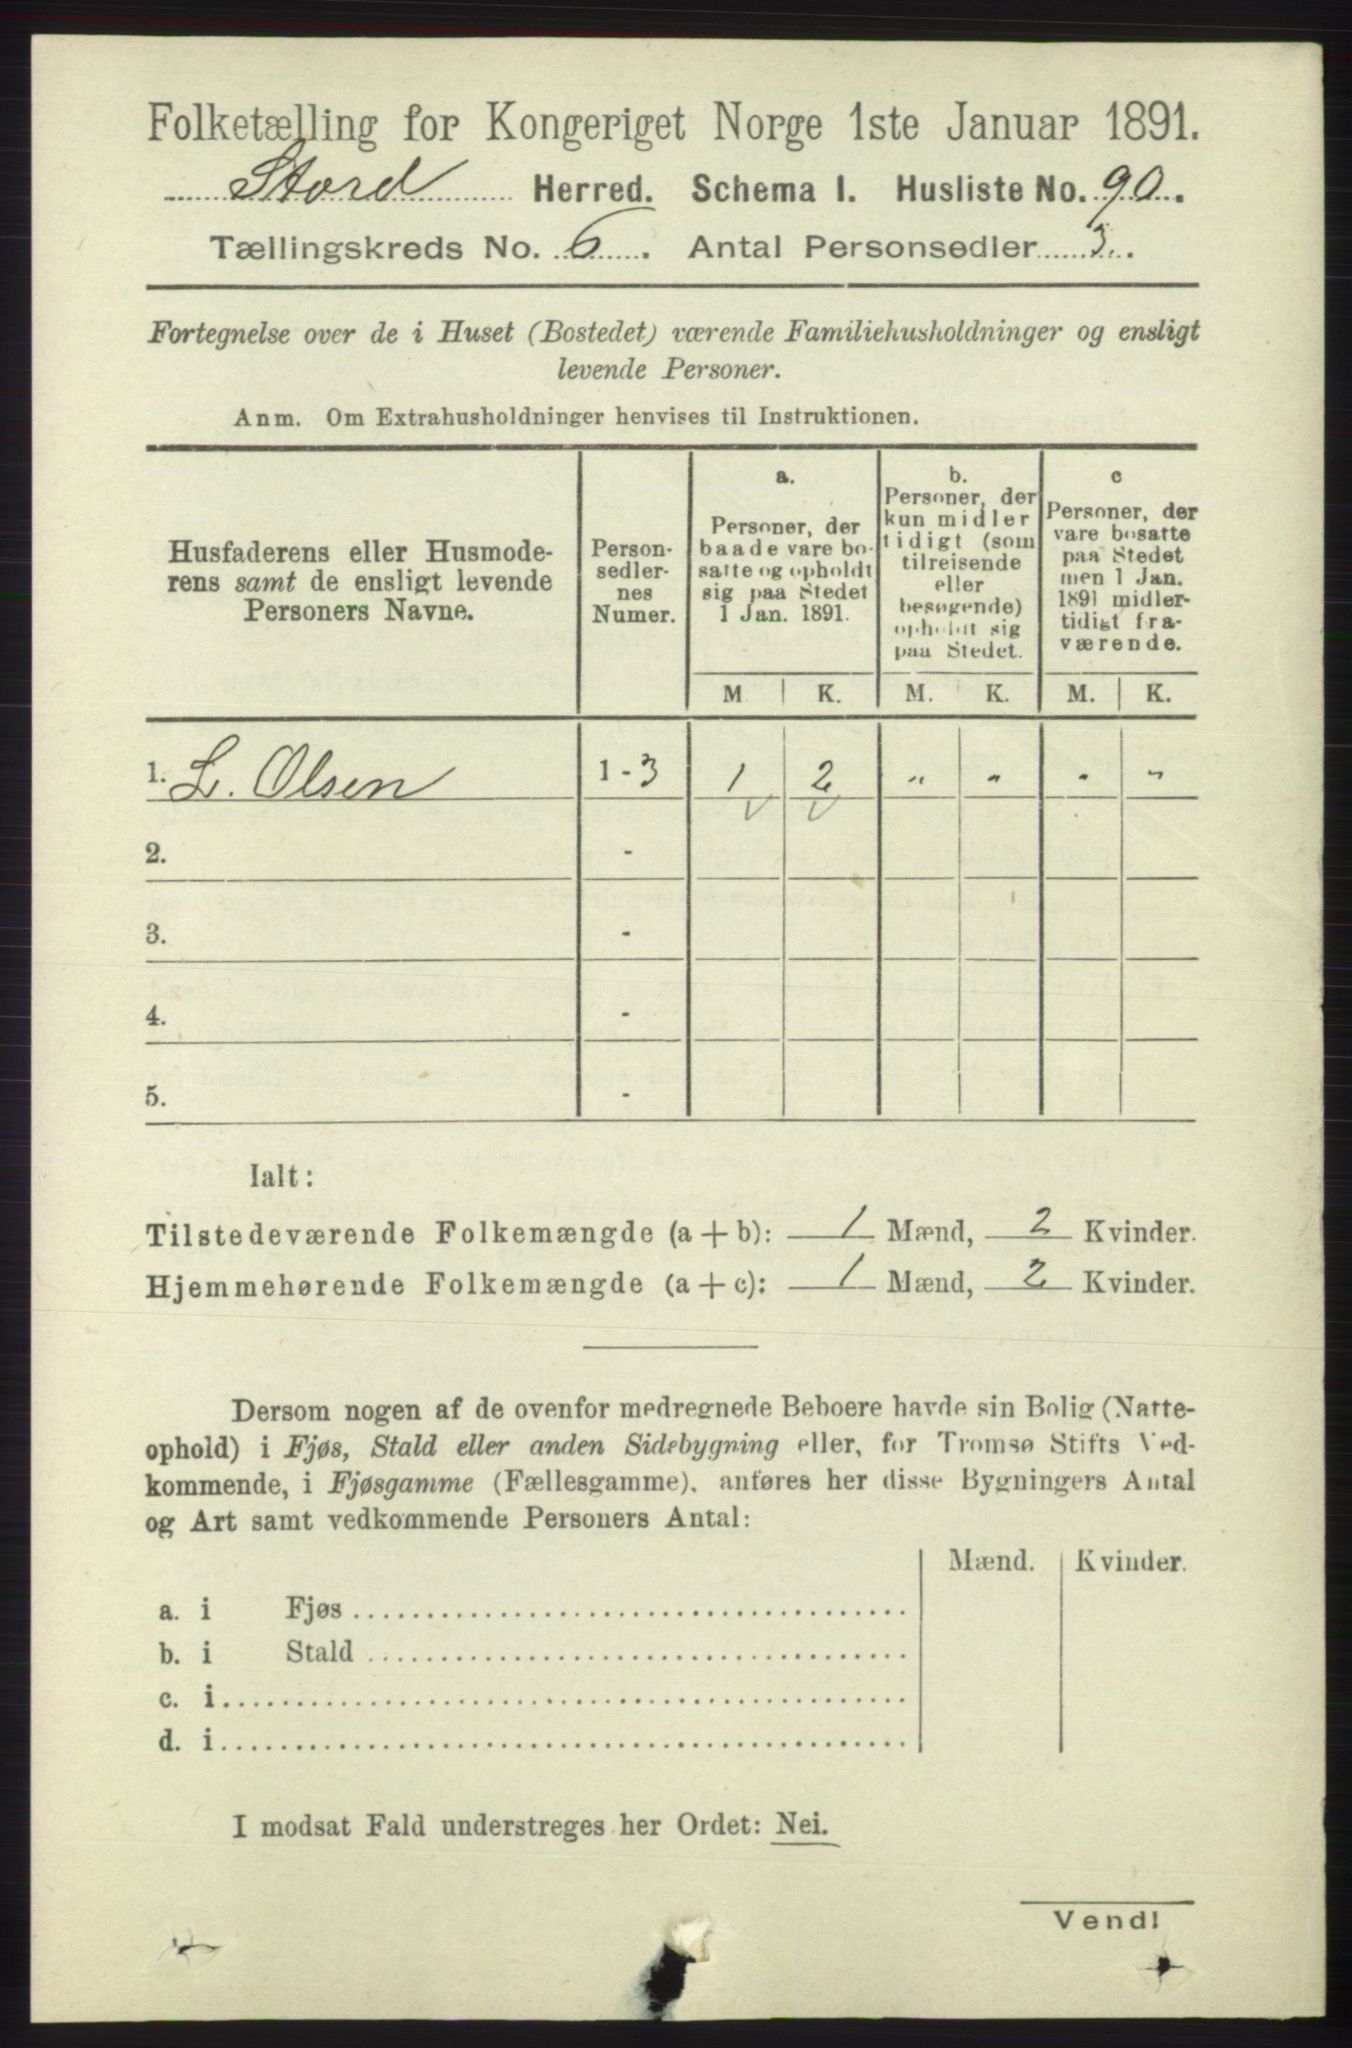 Folketælling for Kongeriget Norge 1ste Januar 1891.
Stord Herred. Schema I. Husliste No. 90.
Tællingskreds No. 6. Antal Personsedler 3.
Fortegnelse over de i Huset (Bostedet) værende Familiehusholdninger og ensligt
levende Personer.
Anm. Om Extrahusholdninger henvises til Instruktionen.
Husfaderens eller Husmode-
rens samt de ensligt levende
Personers Navne.
Person-
sedler-
nes
Numer.
a.
Personer, der
baade vare bo-
satte og opholdt
sig paa Stedet
1 Jan. 1891.
b.
Personer, der
kun midler
tidigt (som
tilreisende
eller
besøgende)
opholdt sig
paa Stedet.
c
Personer, der
vare bosatte
paa Stedet
men 1 Jan.
1891 midler-
tidigt fra-
værende.
M K. M. K. M. K.
1. L. Olsen 1 - 3 1 2 " " " "
2. -
3. -
4. -
5. -
Ialt:
Tilstedeværende Folkemængde (a + b): 1 Mænd, 2 Kvinder.
Hjemmehørende Folkemængde (a + c): 1 Mænd, 2 Kvinder.
Dersom nogen af de ovenfor medregnede Beboere havde sin Bolig (Natte-
ophold) i Fjøs, Stald eller anden Sidebygning eller, for Tromsø Stifts Ved-
kommende, i Fjøsgamme (Fællesgamme), anføres her disse Bygningers Antal
og Art samt vedkommende Personers Antal:
Mænd. Kvinder.
a. i Fjøs
b. i Stald
c. i
d. i
I modsat Fald understreges her Ordet: Nei.
Vend!